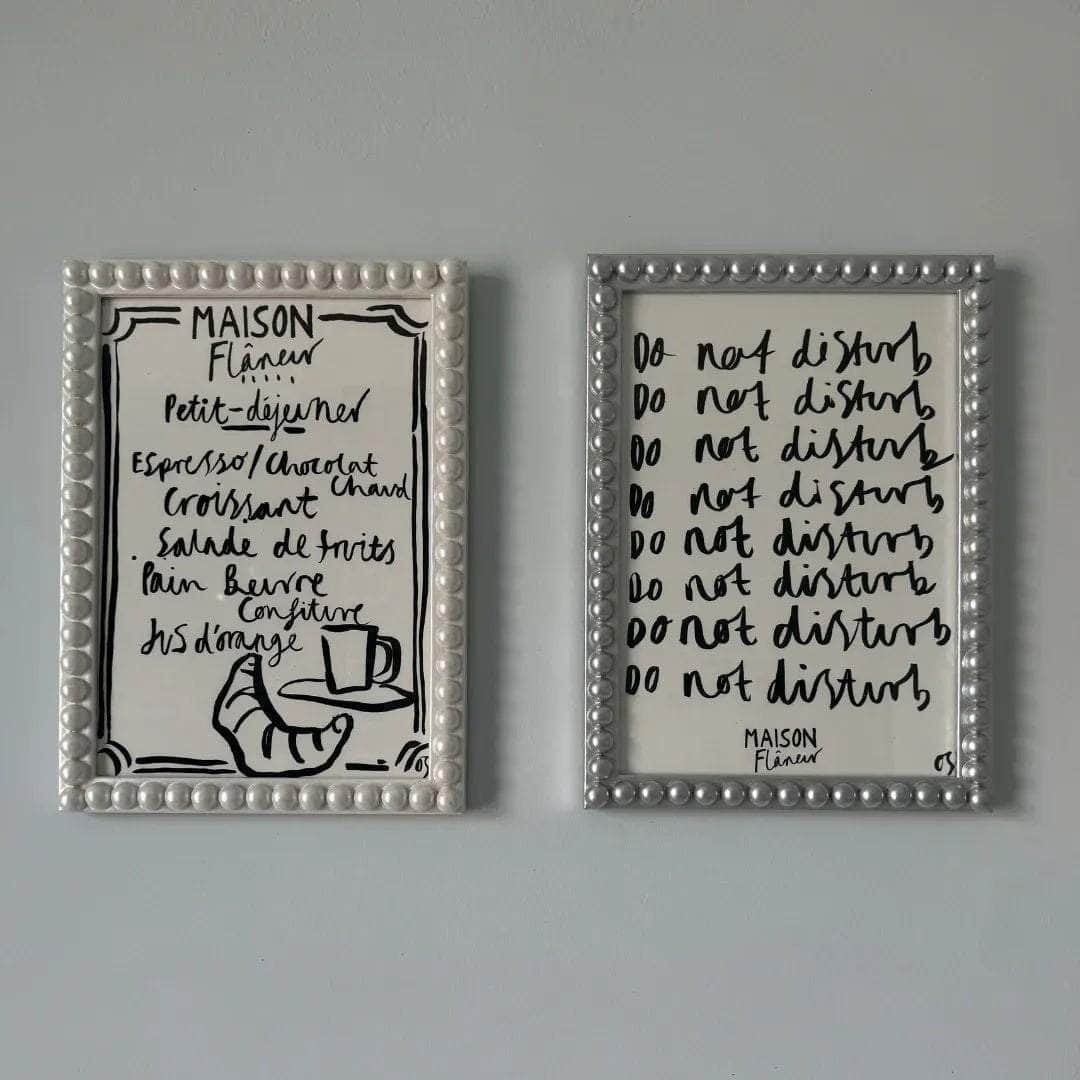 MAISON
Flâneur
Petit-déjeuner
Espresso/Chocolat
Chaud
Croissant
Salade de fruits
Pain Beurre
Confiture
Jus d'orange
OS
Do not disturb
Do not disturb
Do not disturb
Do not disturb
Do not disturb
Do not disturb
Do not disturb
Do not disturb
MAISON
Flâneur
OS